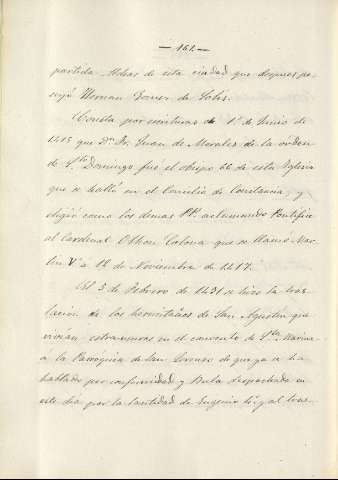 — 161 —
partida Aldeas de esta ciudad que despues po-
seyó Hernan Gomez de Solis.
Consta por escrituras de 1º de Junio de
1415 que Dn. Fr. Juan de Morales de la orden
de Sto. Domingo fué el obispo 26 de esta Iglesia
que se halló en el Concilio de Constancia, y
eligió como los demas PP. aclamando Pontifice
al Cardenal Othon Colona que se llamó Mar-
tin V á 12 de Noviembre de 1417.
El 3 de Febrero de 1431 se hizo la tras-
lacion de los hermitaños de San Agustin que
vivian extramuros en el convento de Sta. Marina
á la Parroquia de San Lorenzo de que ya se ha
hablado por conformidad y Bula despachada en
este dia por la Santidad de Eugenio 4º y al tras-